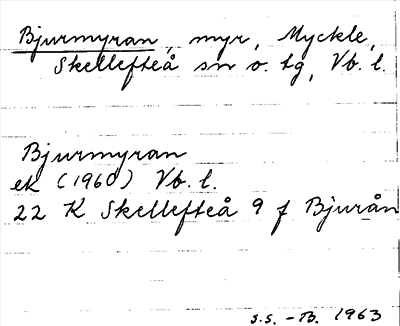 Bjurmyran, myr, Myckle,
Skellefteå sn o. tg, Vb. l.
Bjurmyran
ek (1960) Vb. l.
22 K Skellefteå 9 f Bjurån
S.S. - B. 1963